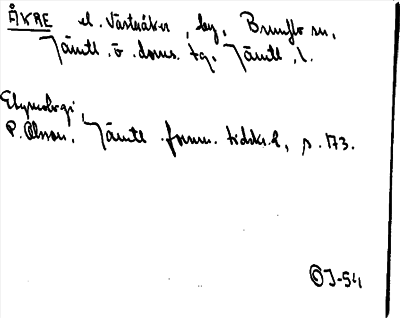 ÅKRE el. Västeråker, by, Brunflo sn,
Jämtl. ö. doms. tg. Jämtl. l.
Etymologi,
P. Olsson, Jämtl. fornm. tidskr. 2, s. 173.
OJ-54